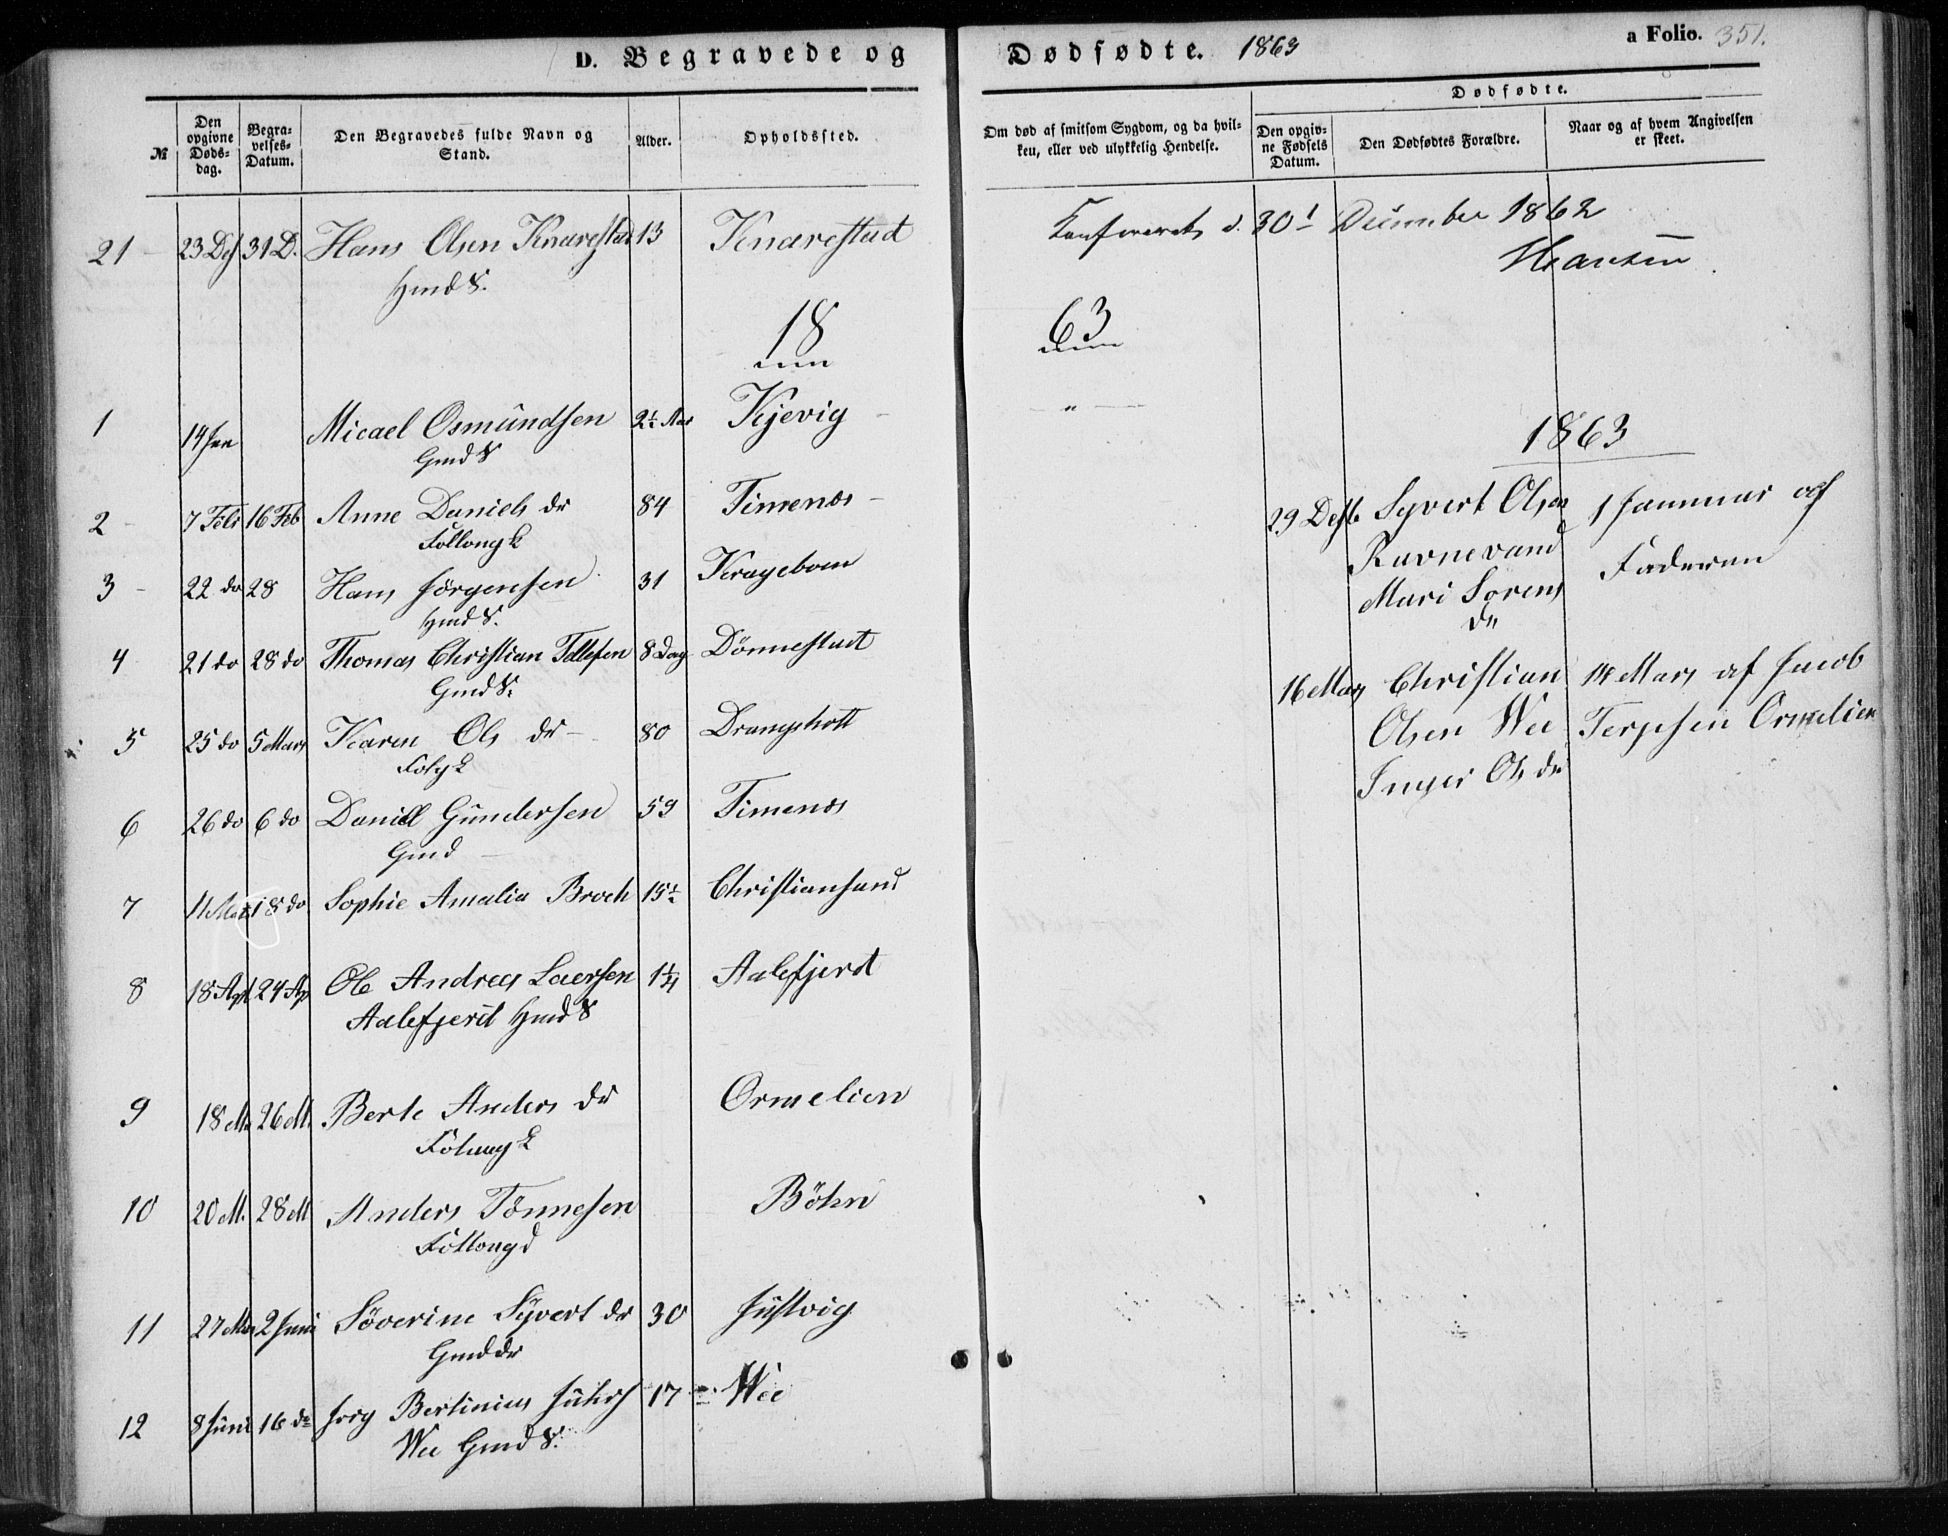 D. Begravede og Dødfødte. 1863 a Folio. 351.
№ Den opgivne Døds-dag. Begra-velses-Datum. Den Begravedes fulde Navn og Stand. Alder. Opholdssted.
Om død af smitsom Sygdom, og da hvil-ken, eller ved ulykkelig Hendelse. Dødfødte. Den opgiv-ne Fødsels Datum. Den Dødfødtes Forældre. Naar og af hvem Angivelsen er skeet.
21 23 Des 31 D. Hans Olsen Knarestad 13 Knarestad
Hmd S.
30 December 1862
18 63
1 14 Jan Micael Osmundsen 2½ Aar Kjevig "
Gmd S
2 7 Febr 16 Feb Anne Daniels dr 84 Timenes
3 22 do 28 Hans Jörgensen 31 Krageboen
Hmd S.
4 21 do 28 do Thomas Christian Tellefsen 8 Dag Dönnestad
Gmd S:
5 25 do 5 Mars Karen Ols dr 80 Drangsholt
6 26 do 6 do Daniell Gundersen 59 Timenes
Gmd
7 11 Mar 18 do Sophie Amalia Broch 15½ Christiansand
8 18 Apl 24 Ap Ole Andreas Laersen 1¼ Aalefjerd
Aalefjerd Hmd S
9 18 M 26 M. Berte Anders dr Ormelien
10 20 M. 28 M Anders Tönnesen Böhn
11 27 Mai 2 Juni Söverine Syvert dr 30 Justvig
Gmd dr
12 8 Juni 16 do Bertinius 17 Wee
Wee Gmd S.
1863
29 Desb Syvert Olsen 1 Januar af
Ravnevand Faderen
Mari Sorens
dr
16 Mars Christian 14 Mars af Jacob
Olsen Wee Terjesen Ormelien
Inger Ols dr